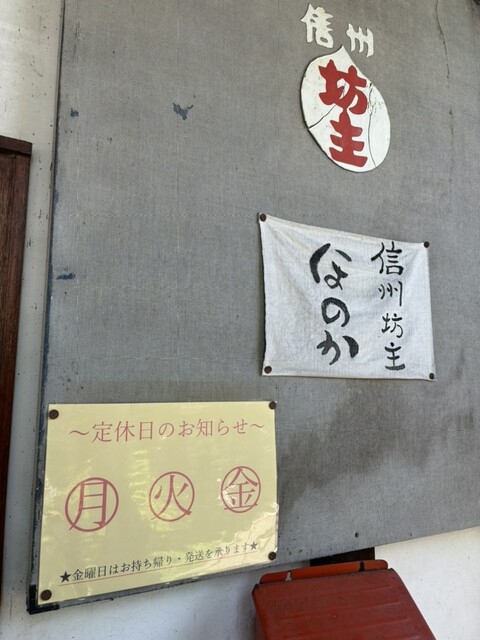 信州
坊主
信州坊主
なのか
～定休日のお知らせ～
月 火 金
★金曜日はお持ち帰り・発送を承ります★